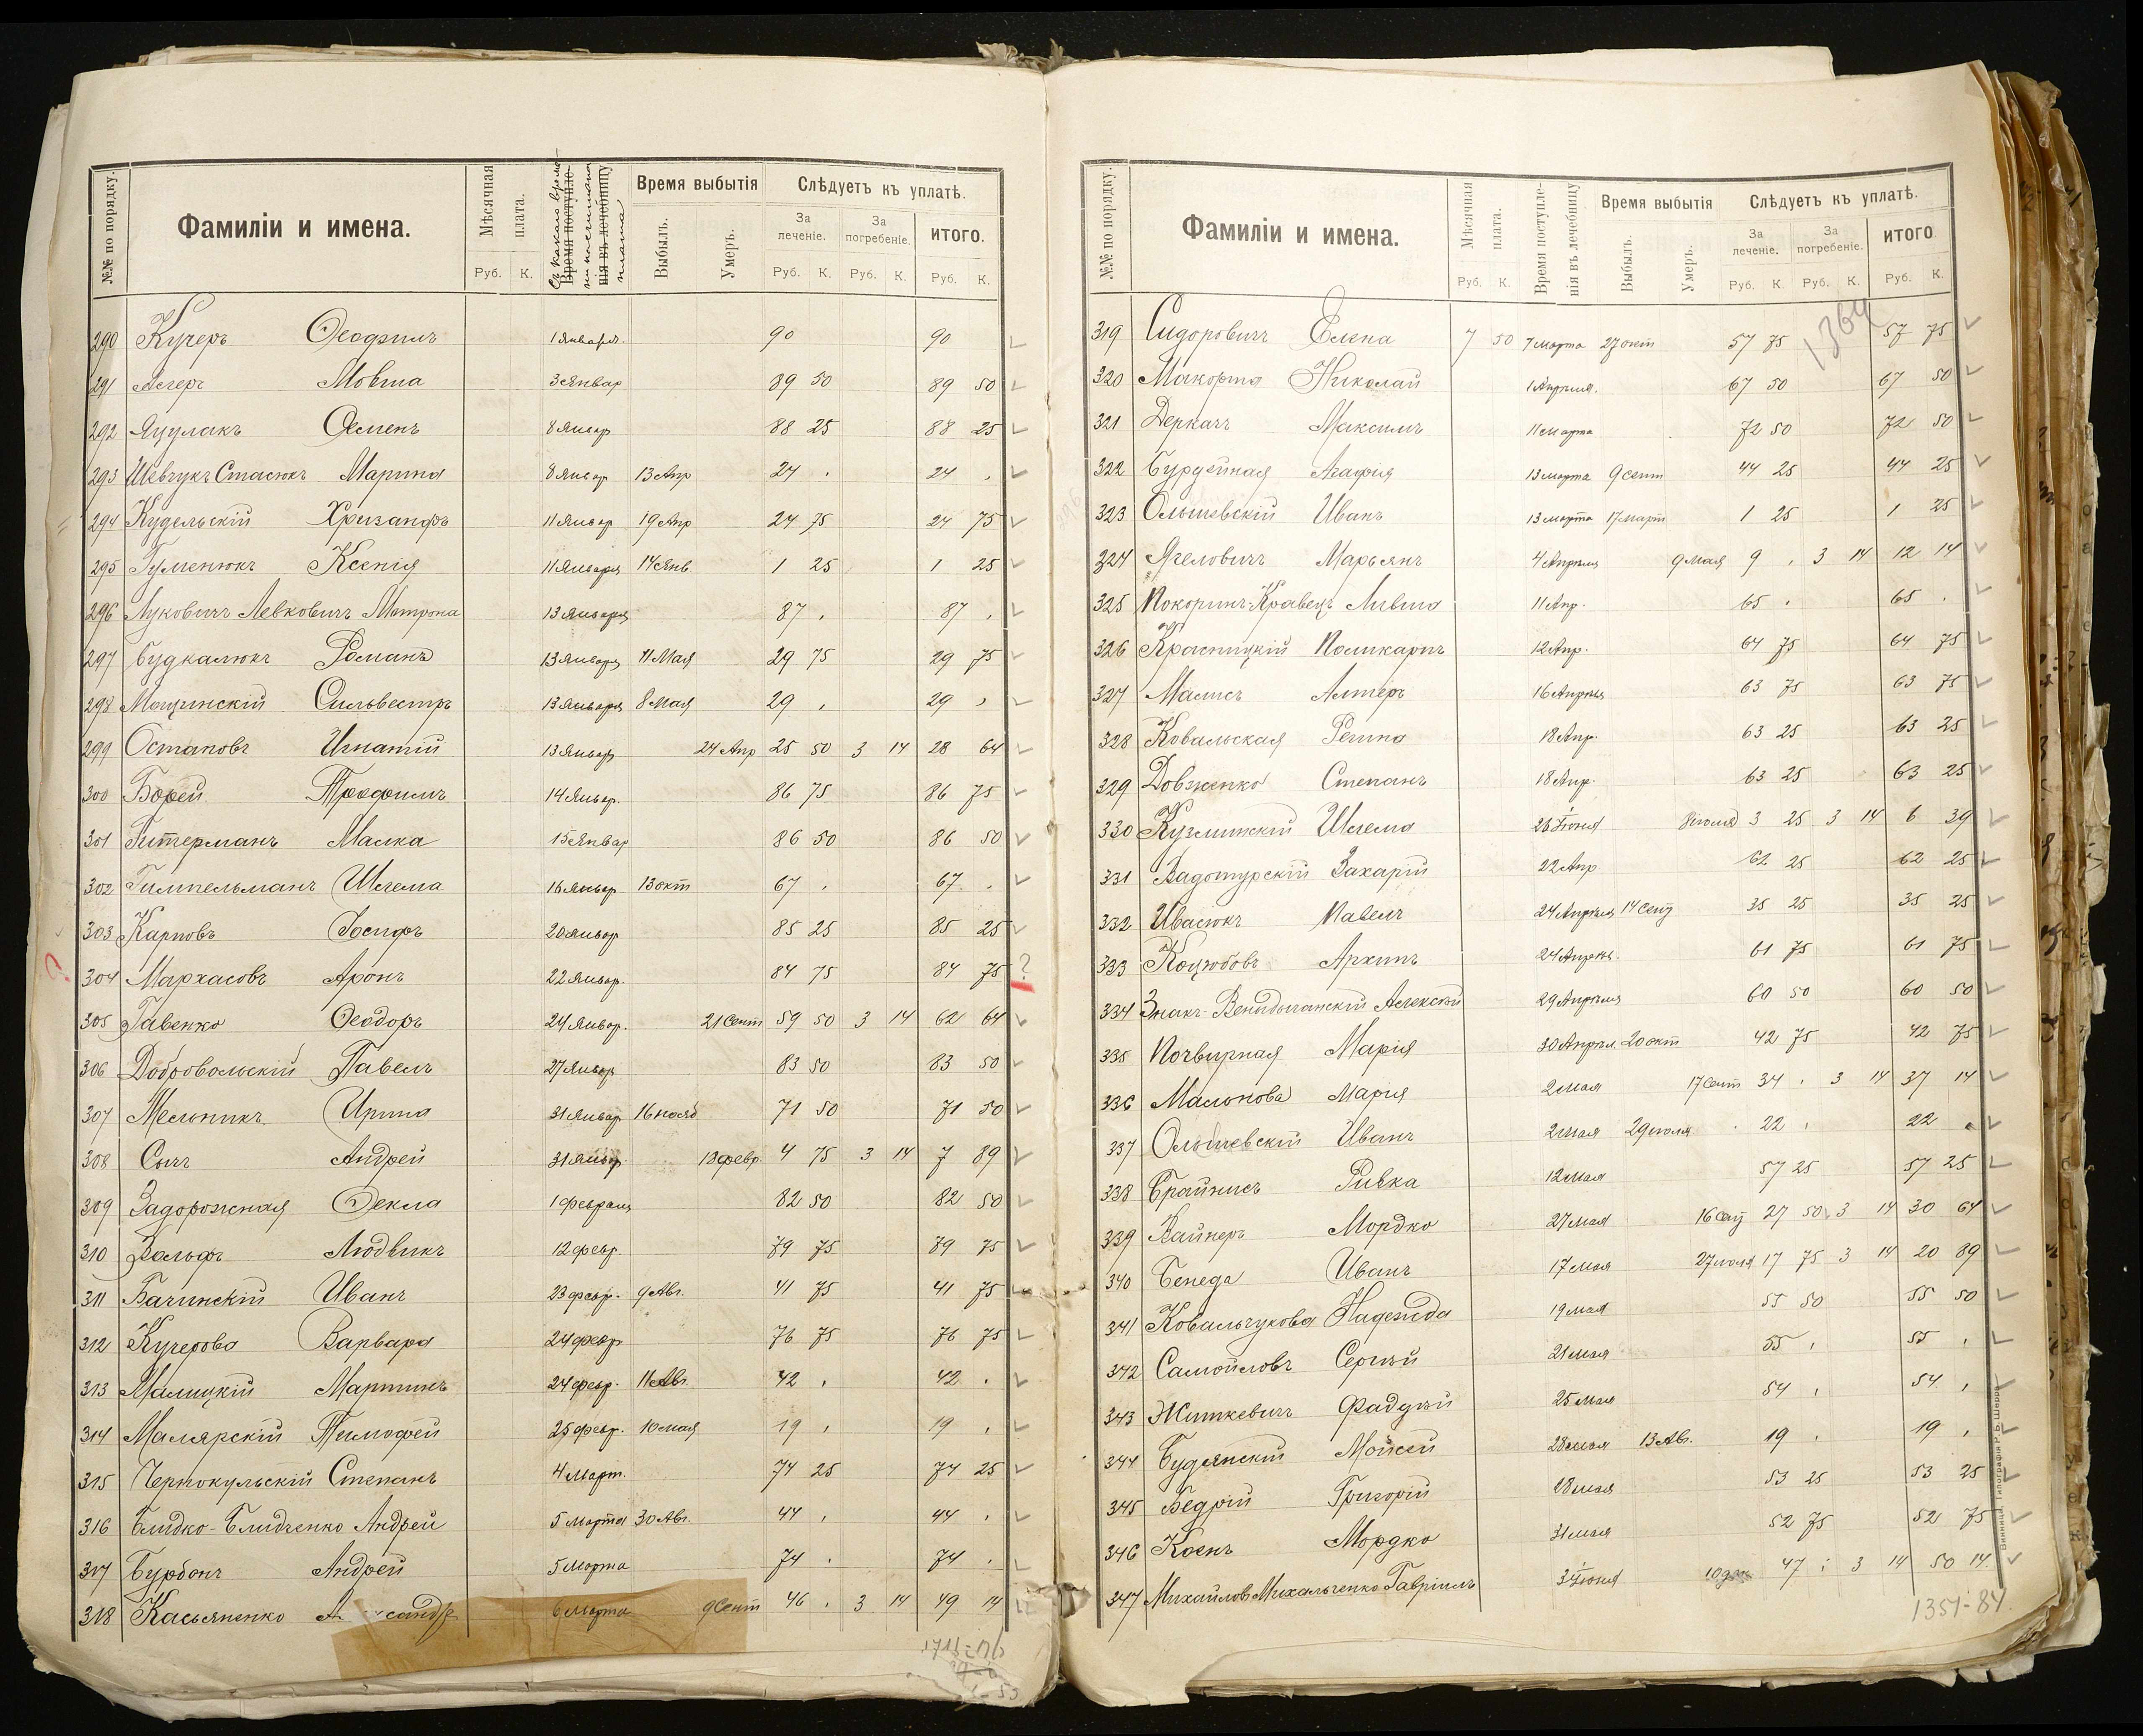 №№ по порядку.
Фамиліи и имена.
Мѣсячная плата.
Руб. К.
Съ какого времени
Время поступленія въ лечебницу
плата
Время выбытія
Выбылъ.
Умеръ.
Слѣдуетъ къ уплатѣ.
За леченіе.
За погребеніе.
ИТОГО.
Руб. К. Руб. К. Руб. К.
290 Кучеръ Ѳеофилъ 1 Января. 90 90
291 Аксгеръ Мовша 3 Январ 89 50 89 50
292 Яцулакъ Семенъ 8 Январ 88 25 88 25
293 Шевчукъ Стасюкъ Марина 8 Январ 13 Апр 24 . 24 .
294 Кудельскій Хрисанфъ 11 Январ 19 Апр 24 75 24 75
295 Гуменюкъ Ксенія 11 Января 14 Янв 1 25 1 25
296 Луковичъ Левковичъ Матрона 13 Января 87 . 87 .
297 Будкалюкъ Романъ 13 Января 11 Мая 29 75 29 75
298 Мощинскій Сильвестръ 13 Января 8 Мая 29 . 29 .
299 Остаповъ Игнатій 13 Январ 24 Апр 25 50 3 14 28 64
300 Борей Трофимъ 14 Январ. 86 75 86 75
301 Гитерманъ Малка 15 Январ 86 50 86 50
302 Гимпельманъ Шлема 16 Январ 13 окт 67 . 67 .
303 Карповъ Іосифъ 20 Январ 85 25 85 25
304 Мархасовъ Аронъ 22 Январ. 84 75 84 75 ?
305 Гавенко Ѳеодоръ 24 Январ. 21 Сент 59 50 3 14 62 64
306 Добровольскій Павелъ 27 Январ 83 50 83 50
307 Мельникъ Ирина 31 Январ 16 нояб 71 50 71 50
308 Сычъ Андрей 31 Январ. 18 февр. 4 75 3 14 7 89
309 Задорожная Ѳекла 1 февраля 82 50 82 50
310 Вальфъ Людвикъ 12 февр. 79 75 79 75
311 Бачинскій Иванъ 23 февр. 9 Авг. 41 75 41 75
312 Кучерова Варвара 24 февр 76 75 76 75
313 Малицкій Мартинъ 24 февр. 11 Авг. 42 . 42 .
314 Малярскій Тимофей 25 февр. 10 мая 19 . 19 .
315 Чернокульскій Степанъ 4 март. 74 25 74 25
316 Блидко-Блидченко Андрей 5 марта 30 Авг. 44 . 44 .
317 Бурбанъ Андрей 5 марта 74 . 74 .
318 Касьяненко 6 марта 9 Сент 46 . 3 14 49 14
№№ по порядку.
Фамиліи и имена.
Мѣсячная плата.
Руб. К.
Время поступленія въ лечебницу
Время выбытія
Выбылъ.
Умеръ.
Слѣдуетъ къ уплатѣ.
За леченіе.
За погребеніе.
ИТОГО
Руб. К. Руб. К. Руб. К.
1364
319 Сидоровичъ Елена 7 50 7 марта 27 окт 57 75 57 75
320 Макорта Николай 1 Апрѣля. 67 50 67 50
321 Деркачъ Максимъ 11 марта 72 50 72 50
322 Бурдейная Агафия 13 марта 9 сент 44 25 44 25
323 Ольшевскій Иванъ 13 марта 17 март 1 25 1 25
324 Ягеловичъ Марьянъ 4 Апрѣля 9 мая 9 . 3 14 12 14
325 Покоринъ-Кравецъ Ливша 11 Апр. 65 . 65 .
326 Красницкій Поликарпъ 12 Апр. 64 75 64 75
327 Малисъ Алтеръ 16 Апрѣля 63 75 63 75
328 Ковальская Регина 18 Апр. 63 25 63 25
329 Довженко Степанъ 18 Апр. 63 25 63 25
330 Кузминскій Шлема 26 Іюня 8 іюля 3 25 3 14 6 39
331 Вадотурскій Захарій 22 Апр 62 25 62 25
332 Ивасюкъ Павелъ 24 Апрѣля 14 Сент 35 25 35 25
333 Коцюбовъ Архипъ 24 Апрѣл. 61 75 61 75
334 Знакъ-Венадычанскій Алексѣй 29 Апрѣля 60 50 60 50
335 Почвирная Марія 30 Апрѣл. 20 окт 42 75 42 75
336 Мальнова Мария 2 мая 17 Сент 34 . 3 14 37 14
337 Ольшевскій Иванъ 2 мая 29 іюля 22 . 22 .
338 Брайнисъ Ривка 12 мая 57 25 57 25
339 Вайнеръ Мордко 27 мая 27 50 3 14 30 64
340 Бенеда Иванъ 17 мая 27 іюля 17 75 3 14 20 89
341 Ковальчукова Надежда 19 мая 55 50 55 50
342 Самойловъ Сергѣй 21 мая 55 . 55 .
343 Житкевичъ Фадѣй 25 мая 54 . 54 .
344 Будянскій Мойсей 28 мая 13 Авг. 19 . 19 .
345 Бедрій Григорій 28 мая 53 25 53 25
346 Коенъ Мордко 31 мая 52 75 52 75
347 Михайловъ Михальченко Гавріилъ 3 Іюня 47 . 3 14 50 14
1351-84
Винница, Типографія Р. Б. Шерра